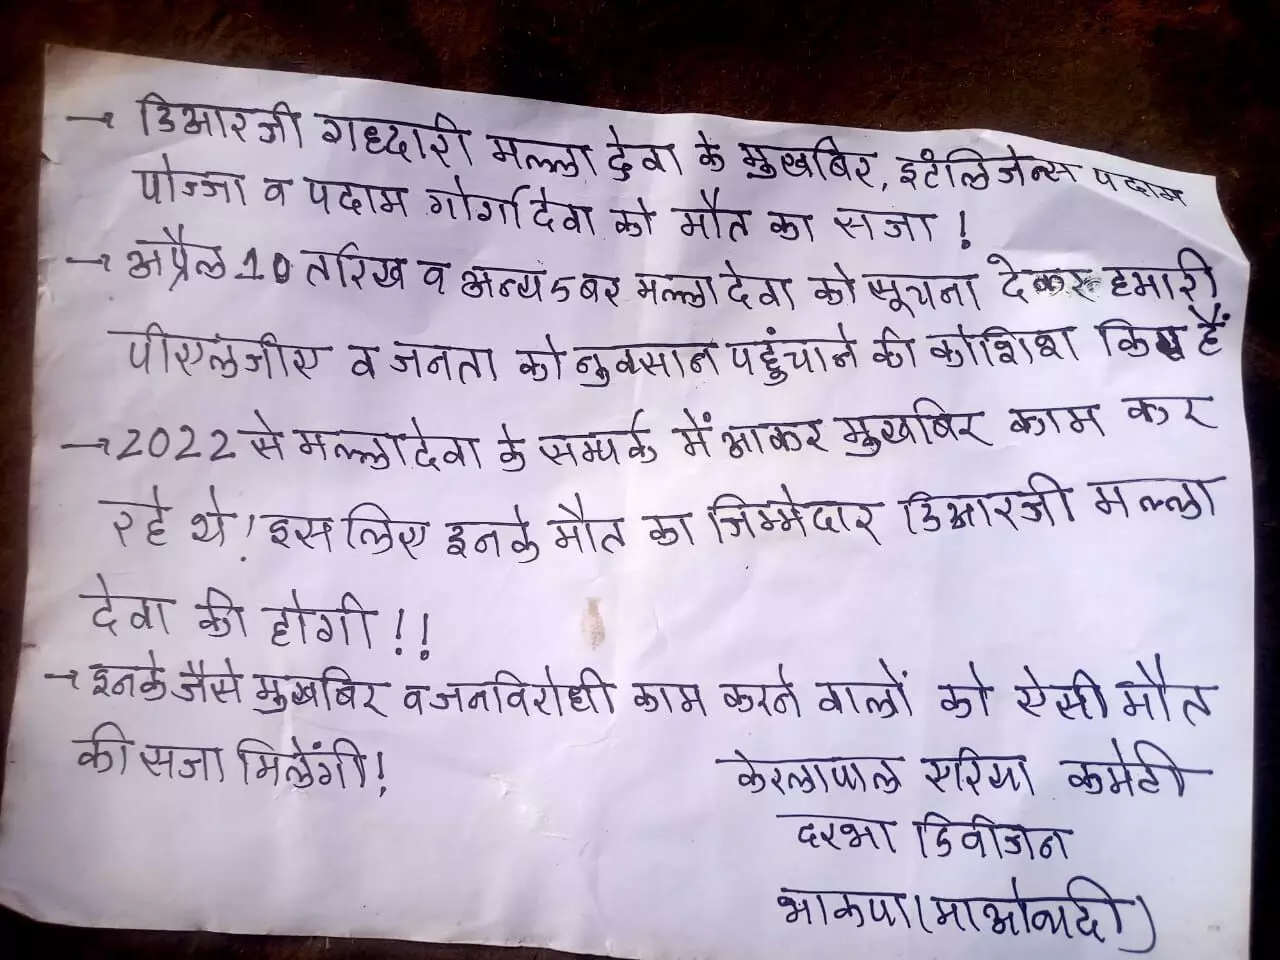 → डिआरजी गध्दारी मल्ला देवा के मुखबिर, इंटेलिजेन्स पदाम
पोज्जा व पदाम गोर्गादेवा को मौत का सजा !
→ अप्रैल 10 तरिख व अन्य 5 बर मल्लादेवा को सूचना देकर हमारी
पीएलजीए व जनता को नुक्सान पहुंचाने की कोशिश किए हैं
→ 2022 से मल्लादेवा के सम्पर्क में आकर मुखबिर काम कर
रहे थे ! इस लिए इनके मौत का जिम्मेदार डिआरजी मल्ला
देवा की होगी !!
→ इनके जैसे मुखबिर व जनविरोधी काम करने वालों को ऐसी मौत
की सजा मिलेंगी !
केरलापाल एरिया कमेटी
दरभा डिवीजन
भाकपा (माओवादी)